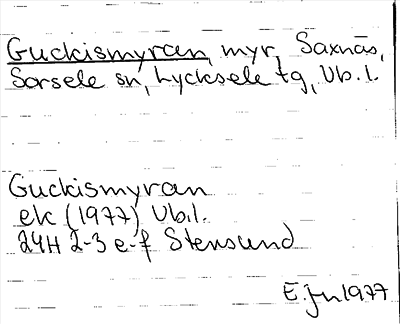 Guckismyran, myr, Saxnäs,
Sorsele sn, Lycksele tg, Vb.l.
Guckismyran
ek (1977) Vb.l.
24H 2-3 e-f Stensund
E.Jn 1977